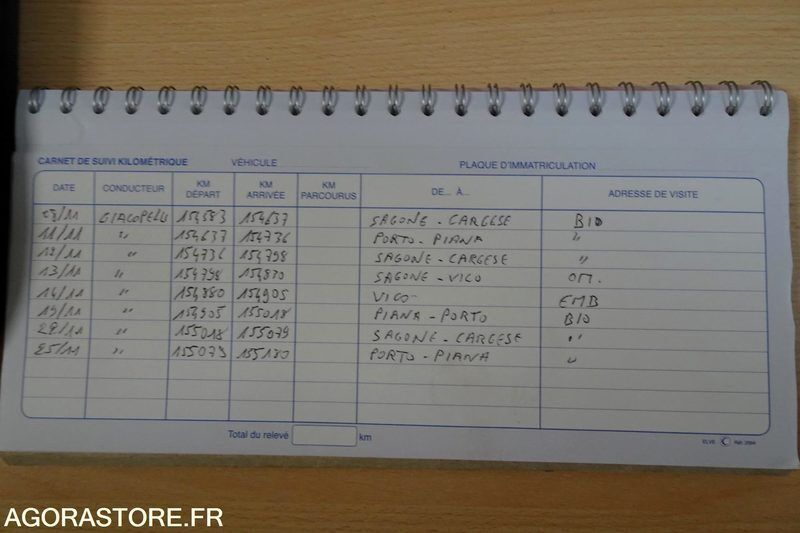 CARNET DE SUIVI KILOMÉTRIQUE VÉHICULE PLAQUE D'IMMATRICULATION
DATE CONDUCTEUR KM DÉPART KM ARRIVÉE KM PARCOURUS DE... A... ADRESSE DE VISITE
154583 154637 SAGONE - CARGESE BIO
11/11 " 154637 154736 PORTO - PIANA "
12/11 " 154736 154798 SAGONE - CARGESE "
13/11 " 154798 SAGONE - VICO OM.
14/11 " 154880 154905 VICO EMB
19/11 " 154905 155018 PIANA - PORTO BIO
" 155018 155079 SAGONE - CARGESE "
25/11 " 155079 155180 PORTO - PIANA "
Total du relevé km
ELVE
AGORASTORE.FR